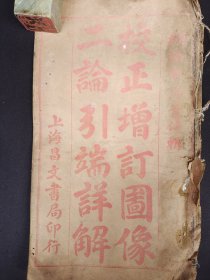 校正增訂圖像
二論引端詳解
上海昌文書局印行